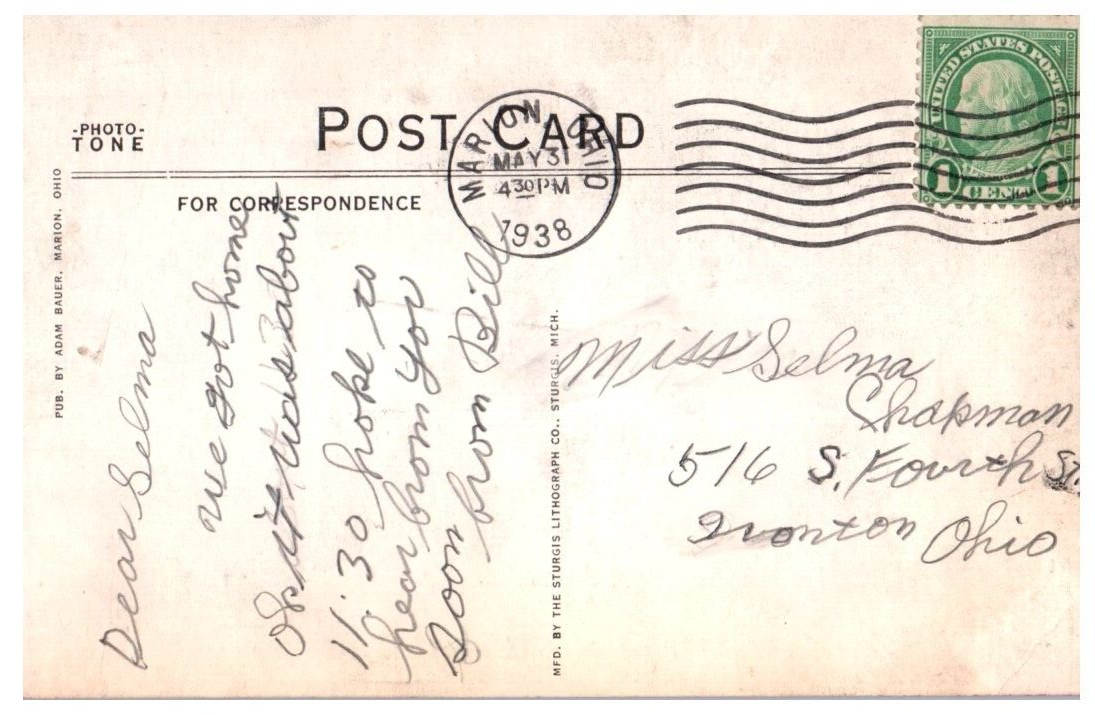 -PHOTO-
TONE
POST CARD
FOR CORRESPONDENCE
PUB. BY ADAM BAUER, MARION, OHIO
MARION, OHIO
MAY 31
4 30 PM
1938
UNITED STATES POSTAGE
1 CENT 1
Dear Selma
we got home
it was about
11:30 hope to
hear from you
Soon from Bill
MFD. BY THE STURGIS LITHOGRAPH CO., STURGIS, MICH.
Miss Selma
Chapman
516 S. Fourth St.
Ironton Ohio